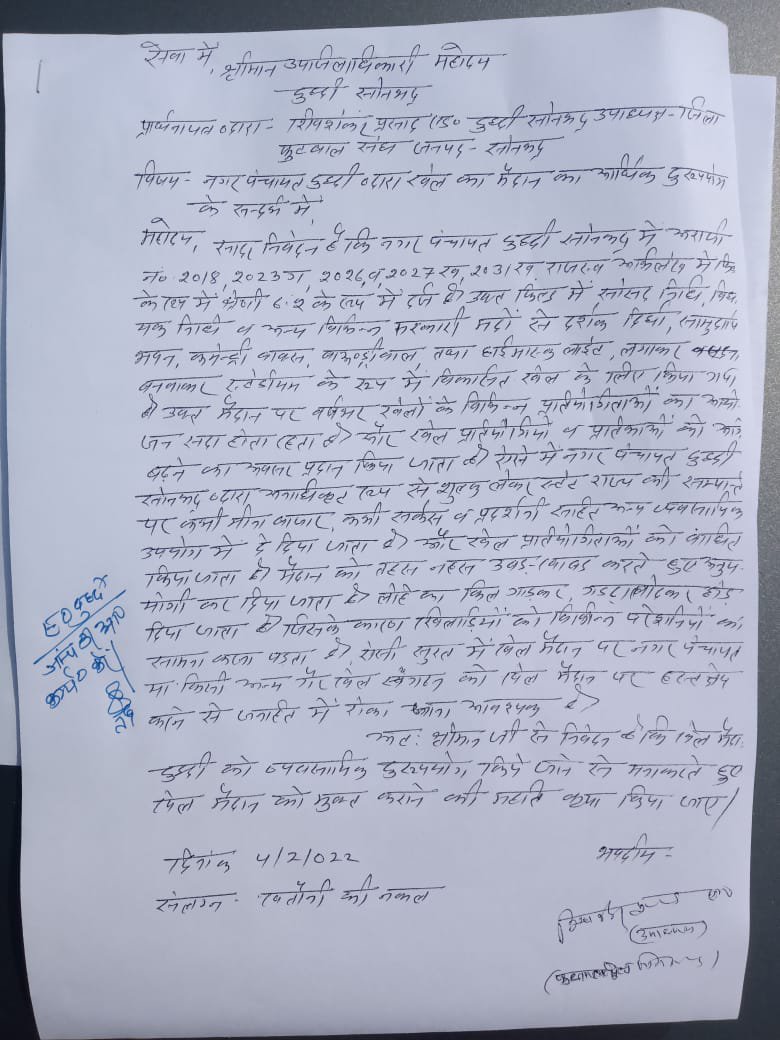 सेवा में,
श्रीमान उपजिलाधिकारी महोदय
दुद्धी सोनभद्र
प्रार्थनापत्र द्वारा- शिवशंकर प्रसाद एड० दुद्धी सोनभद्र उपाध्यक्ष- जिला
फुटबाल संघ जनपद- सोनभद्र
विषय- नगर पंचायत दुद्धी द्वारा खेल का मैदान का आर्थिक दुरूपयोग
के सन्दर्भ में,
महोदय, सादर निवेदन है कि नगर पंचायत दुद्धी सोनभद्र में अराजी
नं० 2018, 2023ग, 2026, व 2027ख, 2031ख राजस्व अभिलेख में
के रूप में श्रेणी 6.2 के रूप में दर्ज है। उक्त फिल्ड में सांसद निधि, विधा-
यक निधि व अन्य विभिन्न सरकारी मदों से दर्शक दिर्घा, सामुदायि
भवन, कमेन्ट्री बाक्स, बाऊण्ड्रीवाल तथा हाईमास्क लाईट, लगाकर
बनवाकर स्टेडियम के रूप में विकासित खेल के लिए किया गया
है। उक्त मैदान पर वर्षभर खेलों के विभिन्न प्रतियोगिताओं का आयो-
जन सदा होता रहता है। और खेल प्रतियोगियों व प्रतिभाओं को आगे
बढ़ने का अवसर प्रदान किया जाता है। ऐसे में नगर पंचायत दुद्धी
सोनभद्र द्वारा अनाधिकृत रूप से शुल्क लेकर स्टेट राज्य की सम्पत्ति
पर कभी मीना बाजार, कभी सर्कस व प्रदर्शनी सहित अन्य व्यवसायिक
उपयोग में दे दिया जाता है। और खेल प्रतियोगिताओं को बाधित
किया जाता है। मैदान को तहस नहस उबड़-खाबड़ करते हुए अनुप-
योगी कर दिया जाता है। लोहे का किल गाड़कर, गड्ढा खोदकर छोड़
दिया जाता है। जिसके कारण खिलाड़ियों को विभिन्न परेशानियों का,
सामना करना पड़ता है, ऐसी सुरत में खेल मैदान पर नगर पंचायत
या किसी अन्य गैर खेल संगठन को खेल मैदान पर हस्तक्षेप
करने से जनहित में रोका जाना आवश्यक है।
अत: श्रीमान जी से निवेदन है कि खेल मैदा-
दुद्धी को व्यवसायिक दुरूपयोग किये जाने से मना करते हुए
खेल मैदान को मुक्त कराने की महति कृपा किया जाए।
EO दुद्धी
जांच कर आव
कार्य० करें।
दिनांक 4/2/022
भवदीय-
संलग्न- खतौनी की नकल
(उपाध्यक्ष)